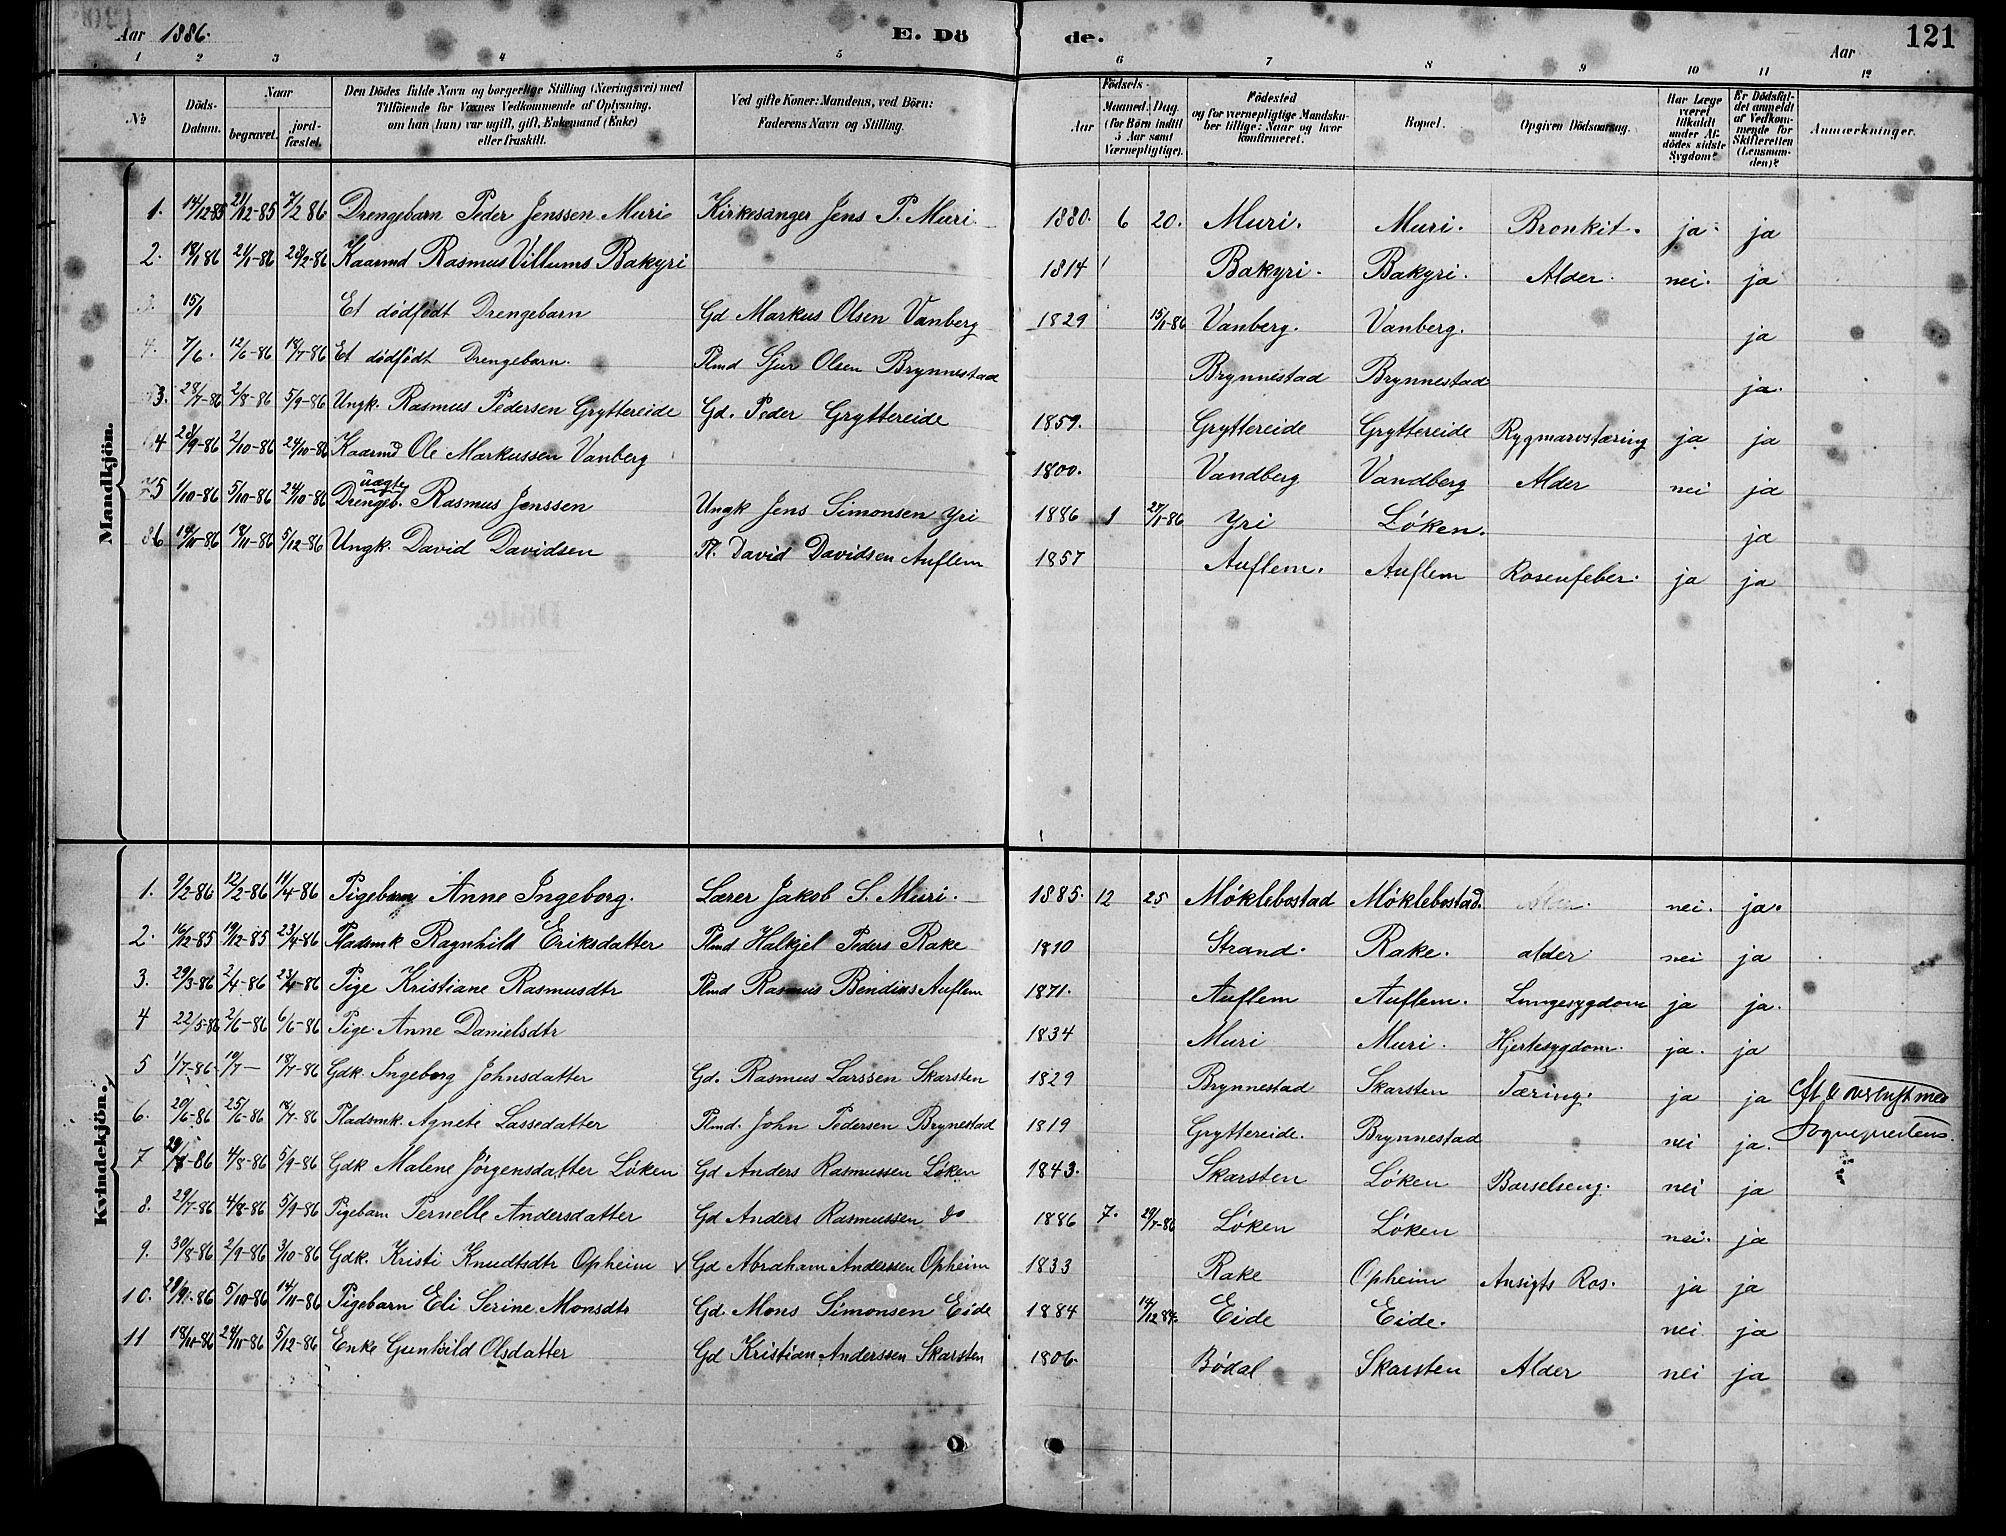 Aar 1886. E. Dö de. Aar 121
1 2 3 4 5 6 7 8 9 10 11 12
№ Döds-Datum. Naar begravet. jord-fæstet. Den Dödes fulde Navn og borgerlige Stilling (Næringsvei) med Tilföiende for Voxnes Vedkommende af Oplysning, om han (hun) var ugift, gift, Enkemand (Enke) eller fraskilt. Ved gifte Koner: Mandens, ved Börn: Faderens Navn og Stilling. Födsels- Aar Maaned. Dag. (for Börn indtil 5 Aar samt Værnepligtige). Födested og for værnepligtige Mandskaber tillige: Naar og hvor konfirmeret. Bopæl. Opgiven Dödsaarsag. Har Læge været tilkaldt under Afdødes sidste Sygdom? Er Dödsfaldet anmeldt af Vedkommende for Skifteretten (Lensmanden)? Anmærkninger.
Mandkjön.
1. 14/12-85 21/12-85 7/2 86 Drengebarn Peder Jenssen Muri Kirkesanger Jens P. Muri 1880. 6 20. Muri. Muri. Bronkit. ja ja
2. 18/1 86 21/1-86 28/2-86 Kaarmd Rasmus Villums Bakyri 1814 Bakyri. Bakyri. Alder. nei. ja
3. 15/1 Et dödfödt Drengebarn Gd Markus Olsen Vanberg 1829 15/1-86 Vanberg. Vanberg. ja
4. 7/6. 12/6-86 18/7-86 Et dödfödt Drengebarn. Plmd Sjur Olsen Brynnestad Brynnestad Brynnestad ja.
3. 28/7-86 2/8-86 5/9-86 Ungk. Rasmus Pedersen Gryttereide Gd. Peder Gryttereide 1859. Gryttereide Gryttereide Rygmarvstæring ja ja
4 28/9-86 2/10-86 24/10-86 Kaarmd Ole Markussen Vanberg 1800. Vandberg Vandberg Alder nei ja
5 1/10-86 5/10-86 24/10-86 uægte Drengeb. Rasmus Jenssen Ungk Jens Simonsen Yri 1886 1 27/1-86 Yri Löken. ja
6 14/11-86 18/11-86 5/12-86 Ungk. David Davidsen Pl. David Davidsen Auflem 1857 Auflem. Auflem Rosenfeber. ja ja
Kvindekjön.
1. 9/2-86 12/2-86 11/4-86 Pigebarn Anne Ingeborg. Lærer Jakob S. Muri. 1885. 12 25 Möklebostad Möklebostad. nei. ja.
2. 16/12-85 19/12-85 23/4-86 Pladsmk Ragnhild Eriksdatter Plmd Halkjel Peders Rake 1810 Strand. Rake. alder nei ja
3. 29/3-86 2/4-86 23/4-86 Pige Kristiane Rasmusdtr Plmd Rasmus Bendiks Auflem 1871. Auflem Auflem. Lungesygdom ja ja.
4 22/5-86 2/6-86 6/6-86 Pige Anne Danielsdtr 1834 Muri Muri. Hjertesygdom. ja. ja
5 1/7-86. 10/7- 18/7-86 Gdk. Ingeborg Johnsdatter Gd. Rasmus Larssen Skarsten 1829 Brynnestad Skarsten Tæring. ja ja
6. 20/6-86 25/6-86 18/7-86 Pladsmk. Agnete Lassedatter Plmd. John Pedersen Brynestad 1819 Gryttereide. Brynnestad nei ja. Sogneprestens.
7 86 4/8-86 5/9-86 Gdk Malene Jörgensdatter Löken Gd Anders Rasmussen Löken 1843. Skarsten Löken Barselseng. nei ja
8. 29/7-86 4/8-86 5/9-86 Pigebarn Pernelle Andersdatter Gd Anders Rasmussen do 1886 7. 29/7-86 Löken Löken nei. ja
9. 30/8-86 2/9-86 3/10-86 Gdk. Kristi Knudtsdtr Opheim Gd Abraham Anderssen Opheim 1833 Rake Opheim Ansigts Ros. ja ja
10. 28/9-86 5/10-86 14/11-86 Pigebarn Eli Serine Monsdtr Gd. Mons Simonsen Eide 1884 14/12 84. Eide Eide. nei ja
11 18/11-86 24/11-86 5/12-86 Enke Gunhild Olsdatter Gd Kristian Anderssen Skarsten 1806. Bödal Skarsten Alder nei ja